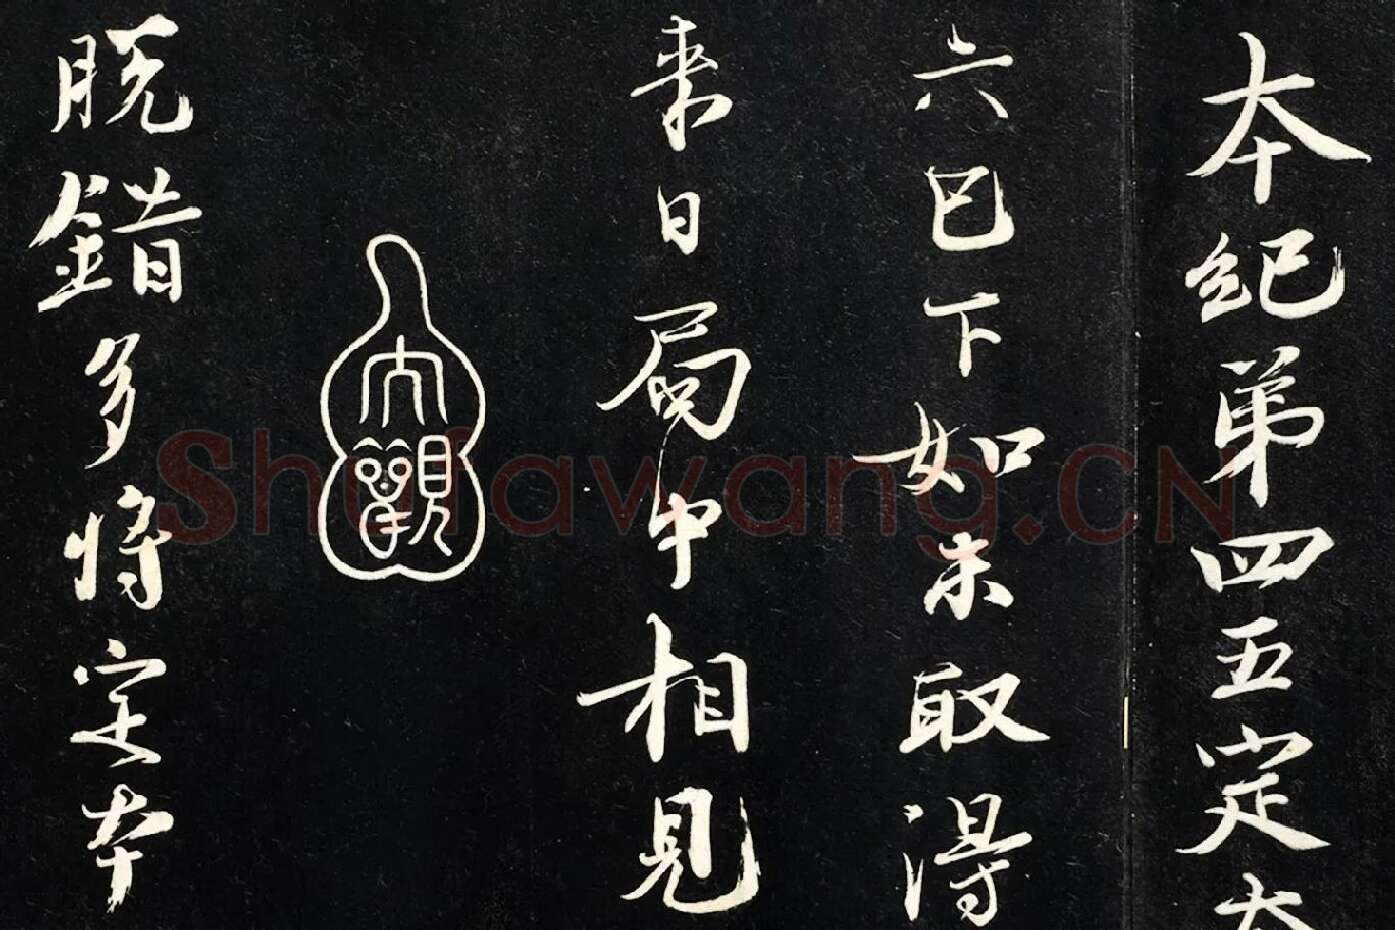 本紀第四五定本
六已下如未取得
来日局中相見
大觀
脱錯多将定本
Shufawang.CN